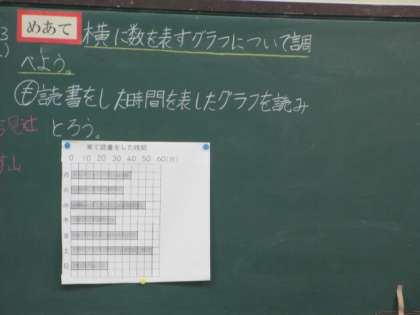 めあて 横に数を表すグラフについて調
べよう。
も 読書をした時間を表したグラフを読み
とろう。
家で読書をした時間
0 10 20 30 40 50 60(分)
月
火
水
木
金
土
日